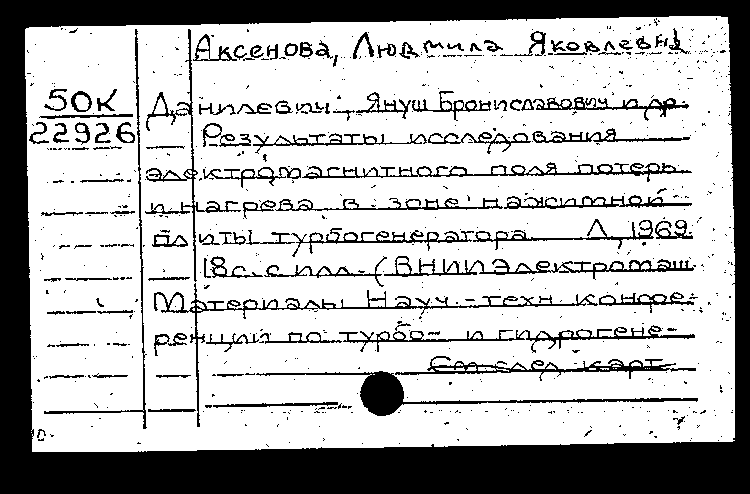 Аксенова, Людмила Яковлевна
50К
22926
Данилевич, Януш Брониславович и др.
Результаты исследования
электромагнитного поля потерь
и нагрева в зоне нажимной
плиты турбогенератора. Л., 1969.
18 с. с илл. (ВНИИэлектромаш
Материалы Науч.-техн. конфе-
ренции по турбо- и гидрогене-
См. след. карт.